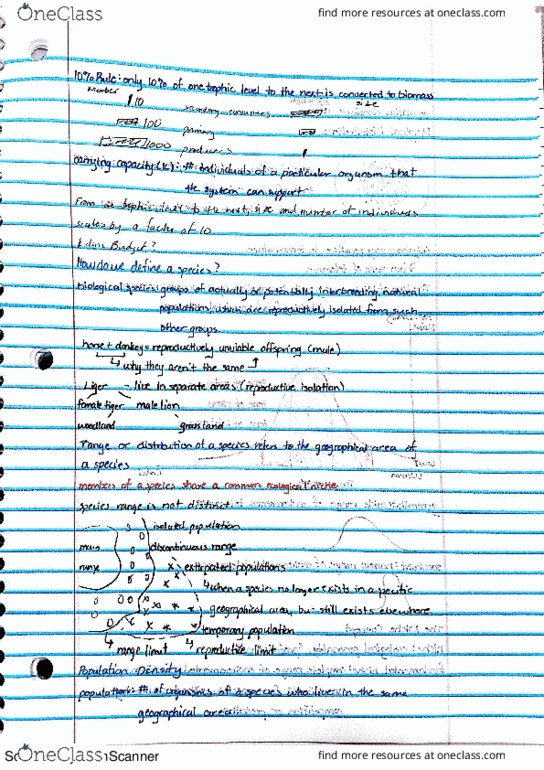 OneClass
find more resources at oneclass.com
10% Rule: only 10% of one trophic level to the next is converted to biomass
Number size
10 secondary consumers
100 primary
1000 producers
carrying capacity (k): #. individuals of a particular organism that
the system can support
From one trophic level to the next, size and number of individuals
scales by a factor of 10.
Budget?
How do we define a species?
biological species: groups of actually or potentially interbreeding natural
populations which are reproductively isolated from such
other groups
horse + donkey = reproductively unviable offspring (mule)
↳ why they aren't the same
Liger - live in separate areas (reproductive isolation)
female tiger male lion
woodland grassland
range or distribution of a species refers to the geographical area of
a species
members of a species share a common ecological niche
species range is not distinct
isolated population
main discontinuous range
range x extirpated populations
↳ when a species no longer exists in a specific
geographical area, but still exists elsewhere
temporary population
↳ range limit ↳ reproductive limit
Population Density
population: #. of organisms of a species who live in the same
geographical area
OneClass Scanner
find more resources at oneclass.com